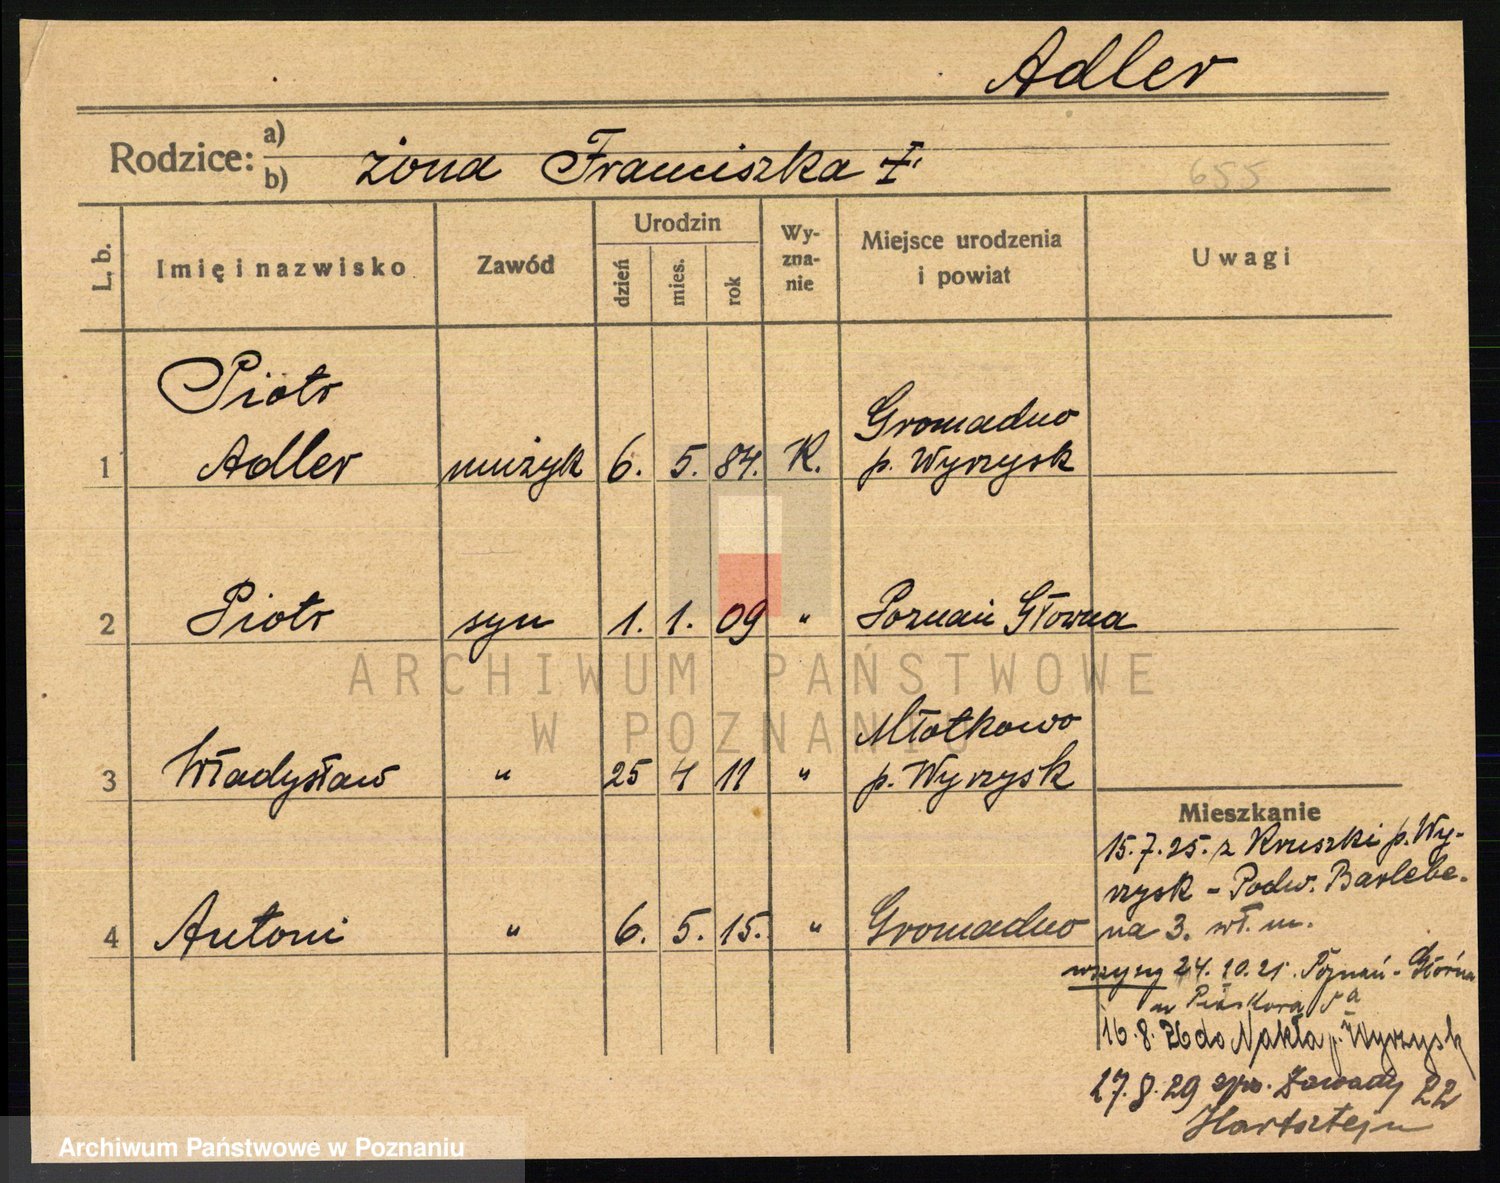 Adler
Rodzice: a)
b) żona Franciszka †
655
L. b. Imię i nazwisko Zawód Urodzin dzień mies. rok Wyznanie Miejsce urodzenia i powiat Uwagi
Piotr
1 Adler muzyk 6. 5. 84. K. Gromadno
p. Wyrzysk
2 Piotr syn 1. 1. 09 " Poznań Główna
3 Władysław " 25 4 11 " Młotkowo
p. Wyrzysk
4 Antoni " 6. 5. 15. " Gromadno
Mieszkanie
15.7.25. z Kruszki p. Wy-
rzysk - Podw. Barlebe-
na 3. wł. m.
wszyscy 24.10.25. Poznań - Główna
5a
16.8.26 do Nakła p. Wyrzysk
27.8.29 Zawady 22
Hartsztejn
ARCHIWUM PAŃSTWOWE
W POZNANIU
Archiwum Państwowe w Poznaniu